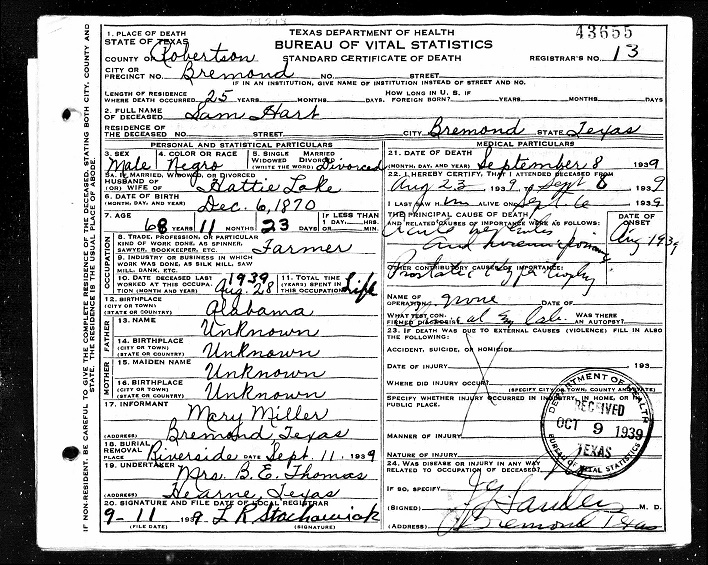 43655
1. PLACE OF DEATH
STATE OF TEXAS
TEXAS DEPARTMENT OF HEALTH
BUREAU OF VITAL STATISTICS
STANDARD CERTIFICATE OF DEATH
COUNTY OF Robertson
REGISTRAR'S NO. 13
CITY OR
PRECINCT NO. Bremond NO. STREET
IF IN AN INSTITUTION, GIVE NAME OF INSTITUTION INSTEAD OF STREET AND NO.
LENGTH OF RESIDENCE
WHERE DEATH OCCURRED 25 YEARS MONTHS DAYS. HOW LONG IN U. S. IF FOREIGN BORN? YEARS MONTHS DAYS
2. FULL NAME
OF DECEASED Sam Hart
RESIDENCE OF
THE DECEASED NO. STREET CITY Bremond STATE Texas
PERSONAL AND STATISTICAL PARTICULARS
3. SEX Male
4. COLOR OR RACE Negro
5. SINGLE MARRIED
WIDOWED DIVORCED
(WRITE THE WORD) Divorced
5A. IF MARRIED, WIDOWED, OR DIVORCED
HUSBAND OF
(OR) WIFE OF Hattie Lake
6. DATE OF BIRTH
(MONTH, DAY, AND YEAR) Dec. 6, 1870
7. AGE 68 YEARS 11 MONTHS 23 DAYS
IF LESS THAN
1 DAY, HRS.
OR MIN.
OCCUPATION
8. TRADE, PROFESSION, OR PARTICULAR
KIND OF WORK DONE, AS SPINNER,
SAWYER, BOOKKEEPER, ETC. Farmer
9. INDUSTRY OR BUSINESS IN WHICH
WORK WAS DONE, AS SILK MILL, SAW
MILL, BANK, ETC.
10. DATE DECEASED LAST
WORKED AT THIS OCCUPATION (MONTH AND YEAR) 1939 Aug. 28
11. TOTAL TIME
(YEARS) SPENT IN
THIS OCCUPATION Life
12. BIRTHPLACE
(CITY OR TOWN)
(STATE OR COUNTRY) Alabama
FATHER
13. NAME Unknown
14. BIRTHPLACE
(CITY OR TOWN)
(STATE OR COUNTRY) Unknown
MOTHER
15. MAIDEN NAME Unknown
16. BIRTHPLACE
(CITY OR TOWN)
(STATE OR COUNTRY) Unknown
17. INFORMANT Mary Miller
(ADDRESS) Bremond Texas
18. BURIAL
REMOVAL
PLACE Riverside DATE Sept. 11, 1939
19. UNDERTAKER Mrs. B. E. Thomas
(ADDRESS) Hearne, Texas
20. SIGNATURE AND FILE DATE OF LOCAL REGISTRAR
9-11 1939 L R Stachowiak
(FILE DATE) (SIGNATURE)
MEDICAL PARTICULARS
21. DATE OF DEATH
(MONTH, DAY, AND YEAR) September 8 1939
22. I HEREBY CERTIFY, THAT I ATTENDED DECEASED FROM
Aug 23 1939, TO Sept 8, 1939
I LAST SAW him ALIVE ON Sept 6 1939
THE PRINCIPAL CAUSE OF DEATH
AND RELATED CAUSES OF IMPORTANCE WERE AS FOLLOWS:
DATE OF
ONSET
Aug 1939
OTHER CONTRIBUTORY CAUSES OF IMPORTANCE:
Prostatic Hypertrophy
NAME OF
OPERATION None DATE OF
WHAT TEST CONFIRMED DIAGNOSIS
WAS THERE
AN AUTOPSY?
23. IF DEATH WAS DUE TO EXTERNAL CAUSES (VIOLENCE) FILL IN ALSO
THE FOLLOWING:
ACCIDENT, SUICIDE, OR HOMICIDE
DATE OF INJURY 193
WHERE DID INJURY OCCUR?
(SPECIFY CITY OR TOWN, COUNTY AND STATE)
SPECIFY WHETHER INJURY OCCURRED IN INDUSTRY, IN HOME, OR IN
PUBLIC PLACE.
MANNER OF INJURY
NATURE OF INJURY
24. WAS DISEASE OR INJURY IN ANY WAY
RELATED TO OCCUPATION OF DECEASED?
IF SO, SPECIFY
(SIGNED) M. D.
(ADDRESS) Bremond Texas
DEPARTMENT OF HEALTH
RECEIVED
OCT 9 1939
TEXAS
BUREAU OF VITAL STATISTICS
IF NON-RESIDENT, BE CAREFUL TO GIVE THE COMPLETE RESIDENCE OF THE DECEASED, STATING BOTH CITY, COUNTY AND
STATE. THIS RESIDENCE IS THE USUAL PLACE OF ABODE.